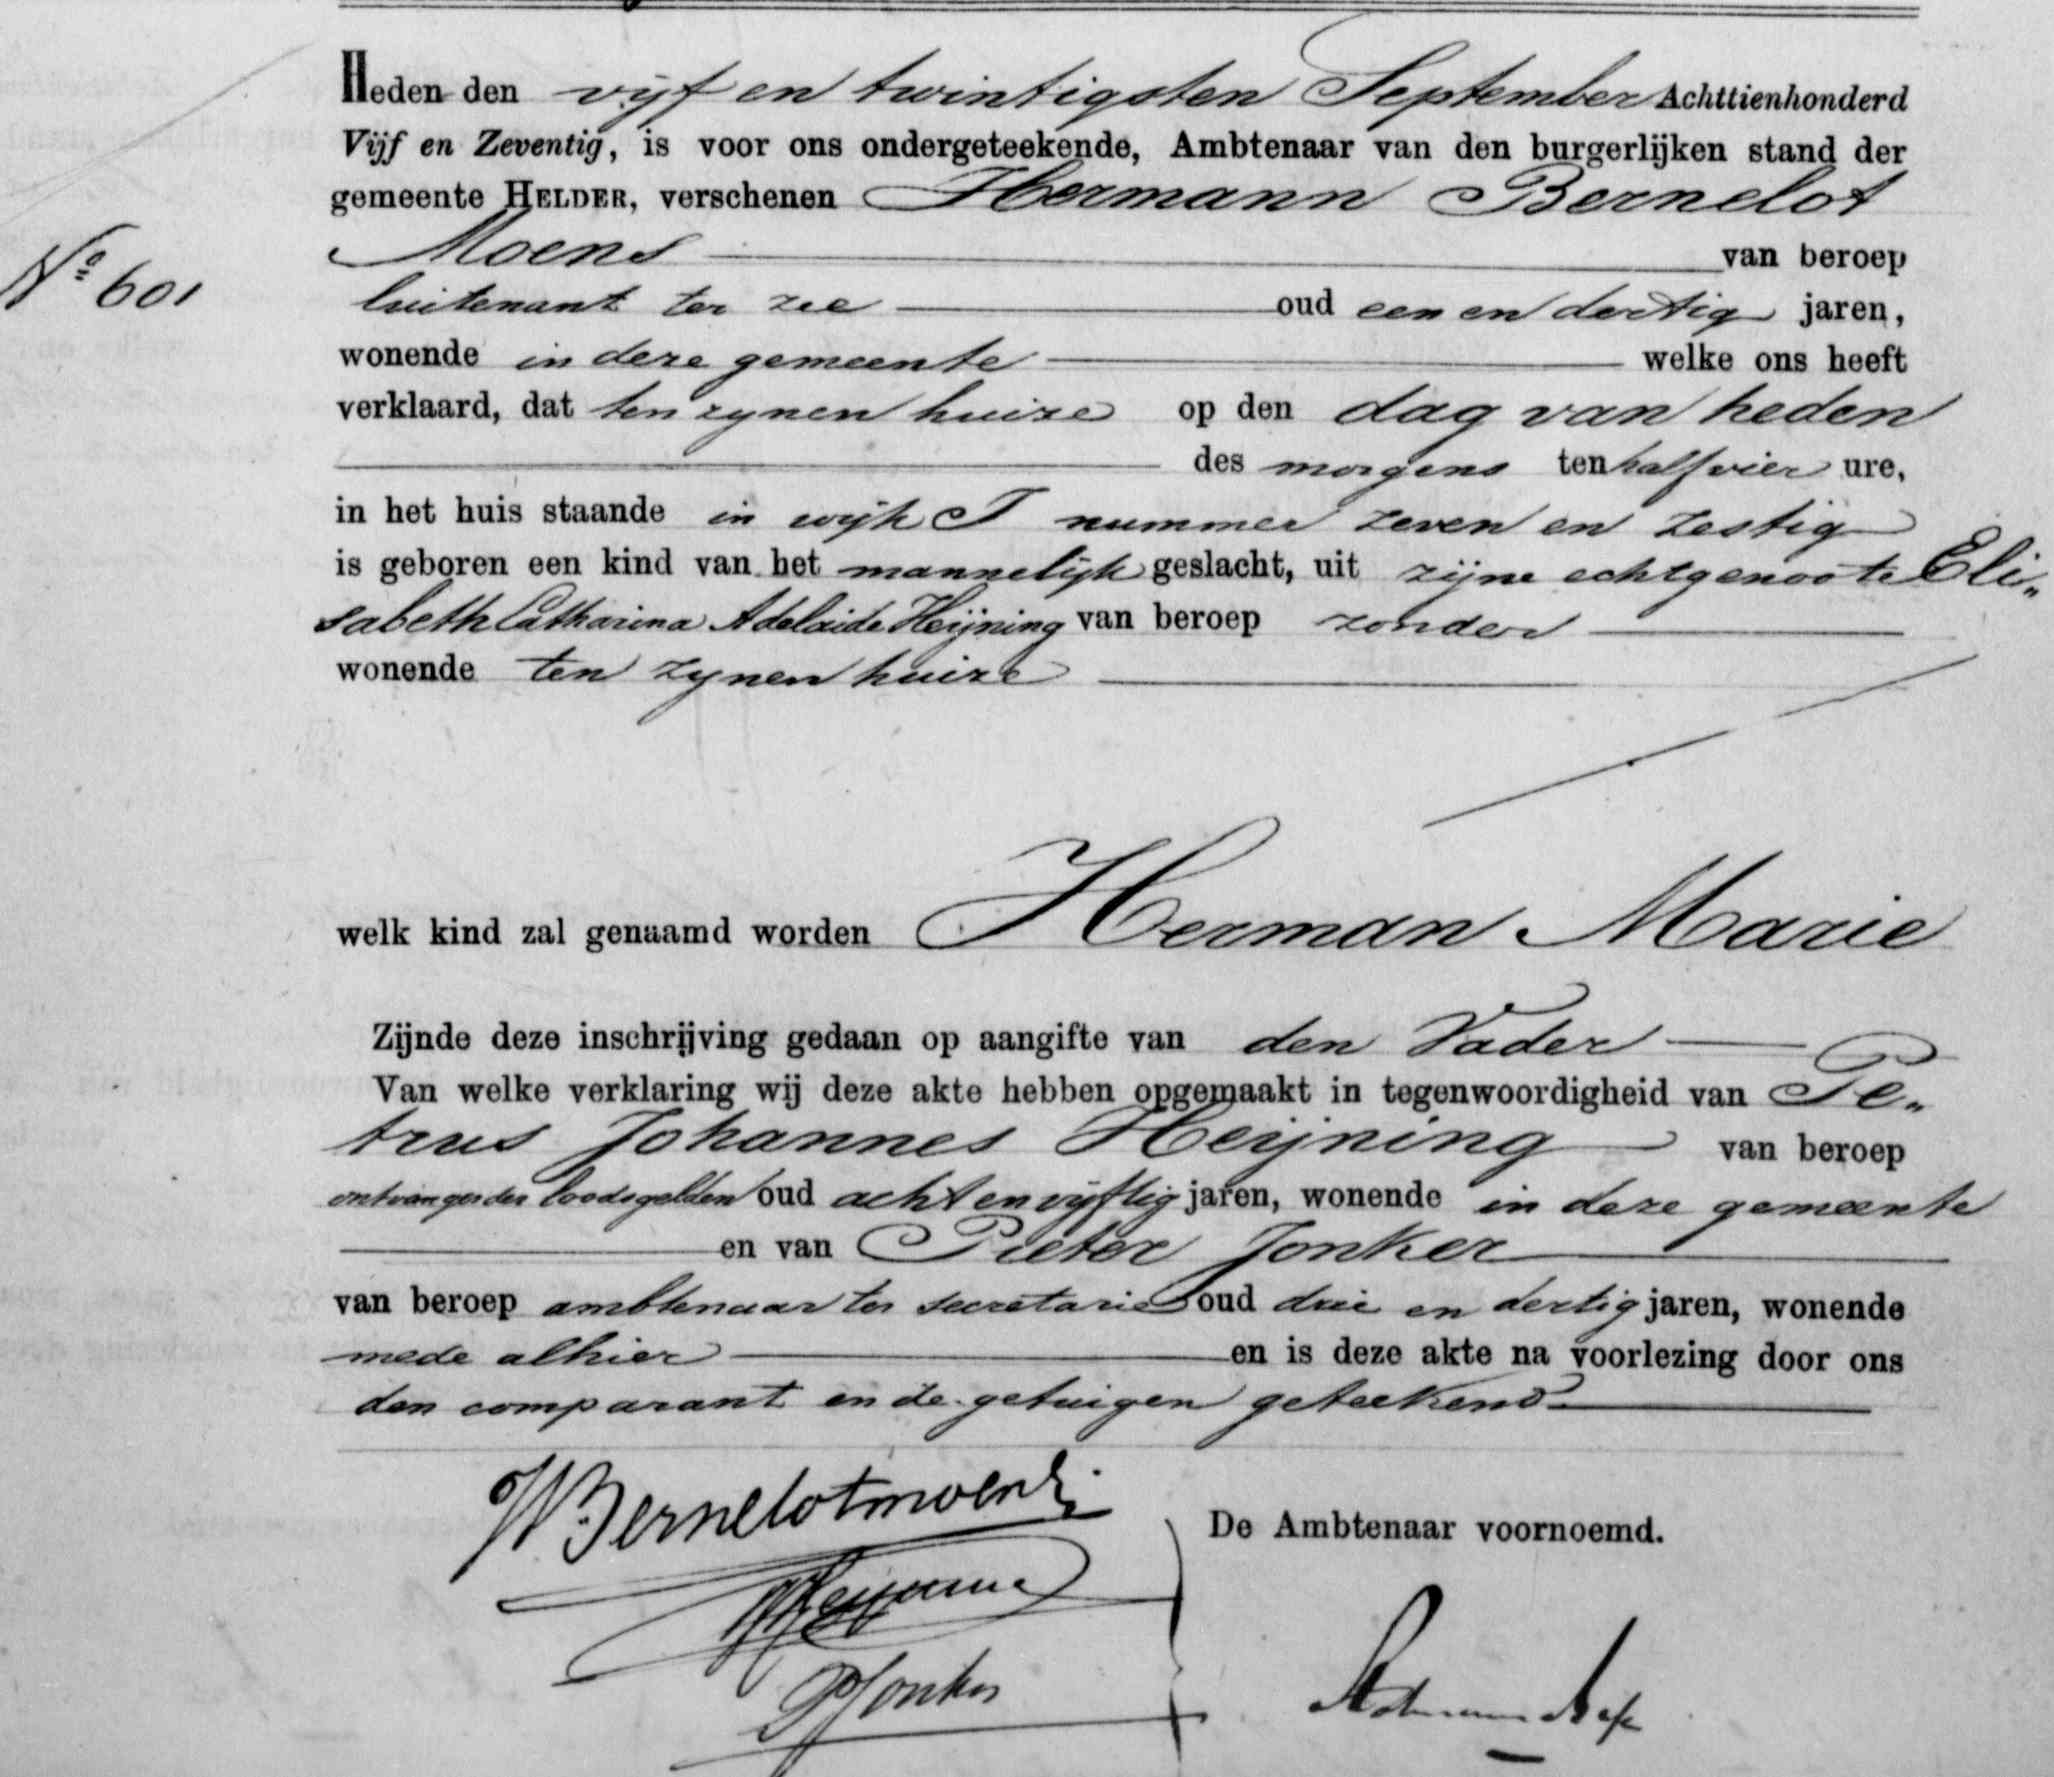 Heden den vijf en twintigsten September Achttienhonderd
Vijf en Zeventig, is voor ons ondergeteekende, Ambtenaar van den burgerlijken stand der
gemeente HELDER, verschenen Hermann Bernelot
Moens van beroep
No 601
luitenant ter zee oud een en dertig jaren,
wonende in deze gemeente welke ons heeft
verklaard, dat ten zynen huize op den dag van heden
des morgens ten half vier ure,
in het huis staande in wijk I nummer zeven en zestig
is geboren een kind van het mannelijk geslacht, uit zijne echtgenoote Eli„
sabeth Catharina Adelaide Heijning van beroep zonder
wonende ten zynen huize
welk kind zal genaamd worden Herman Marie
Zijnde deze inschrijving gedaan op aangifte van den Vader
Van welke verklaring wij deze akte hebben opgemaakt in tegenwoordigheid van Pe„
trus Johannes Heijning van beroep
ontvanger der loodsgelden oud acht en vyftig jaren, wonende in deze gemeente
en van Pieter Jonker
van beroep ambtenaar ter secretarie oud drie en dertig jaren, wonende
mede alhier en is deze akte na voorlezing door ons
den comparant en de getuigen geteekend.
HBernelotmoens
De Ambtenaar voornoemd.
PJHeijning
PJonker